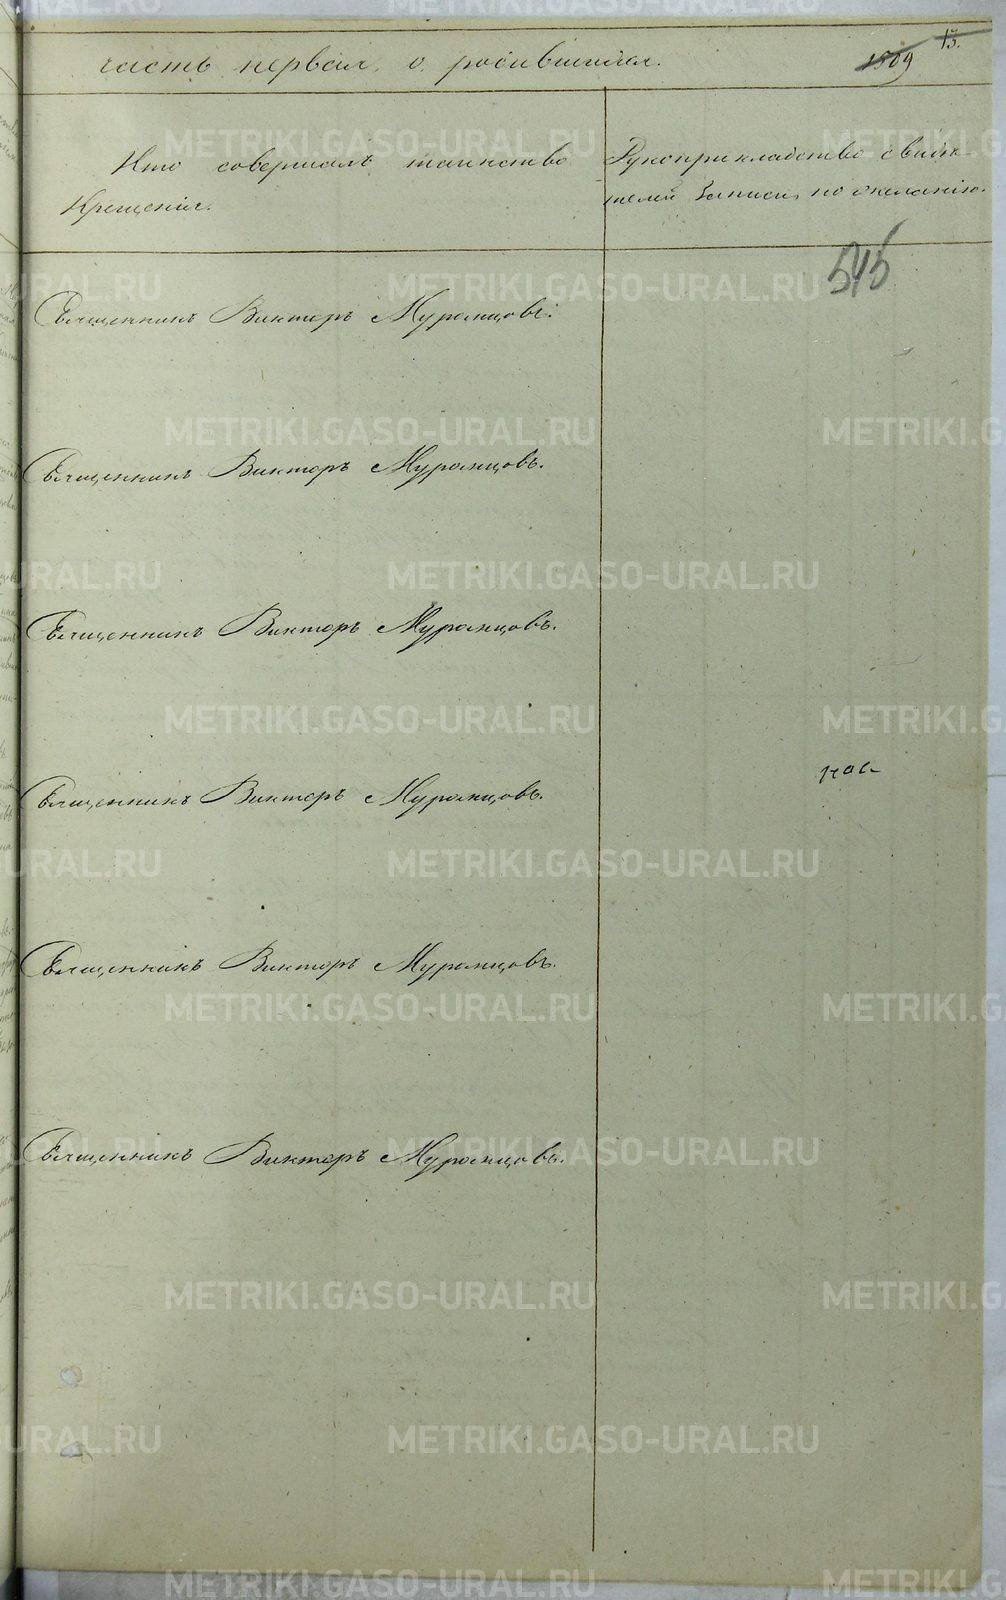 13.
часть первая о родившихся. 1509
Кто совершалъ таинство
Крещенія.
Рукоприкладство свидѣ
телей записи, по желанію.
545
Священникъ Викторъ Муромцовъ.
Священникъ Викторъ Муромцовъ.
Священникъ Викторъ Муромцовъ.
Священникъ Викторъ Муромцовъ.
Священникъ Викторъ Муромцовъ.
Священникъ Викторъ Муромцовъ.
METRIKI.GASO-URAL.RU